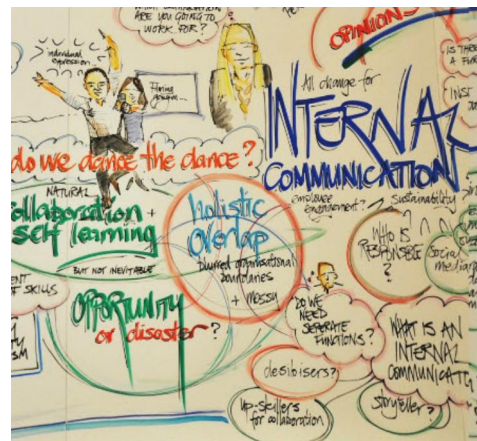 ARE YOU GOING TO
WORK FOR?
OPINIONS
individual
expression...
All change for
INTERNAL
COMMUNICATION
do we dance the dance?
NATURAL
collaboration +
self learning
BUT NOT INEVITABLE
holistic
overlap
blurred organisational
boundaries
+ messy
employee
engagement?
Sustainability
WHO IS
RESPONSIBLE
?
Social
OF SKILLS
OPPORTUNITY
or disaster?
DO WE
NEED
SEPERATE
FUNCTIONS?
WHAT IS AN
INTERNAL
desibisers?
up-skillers
for collaboration
storyteller?